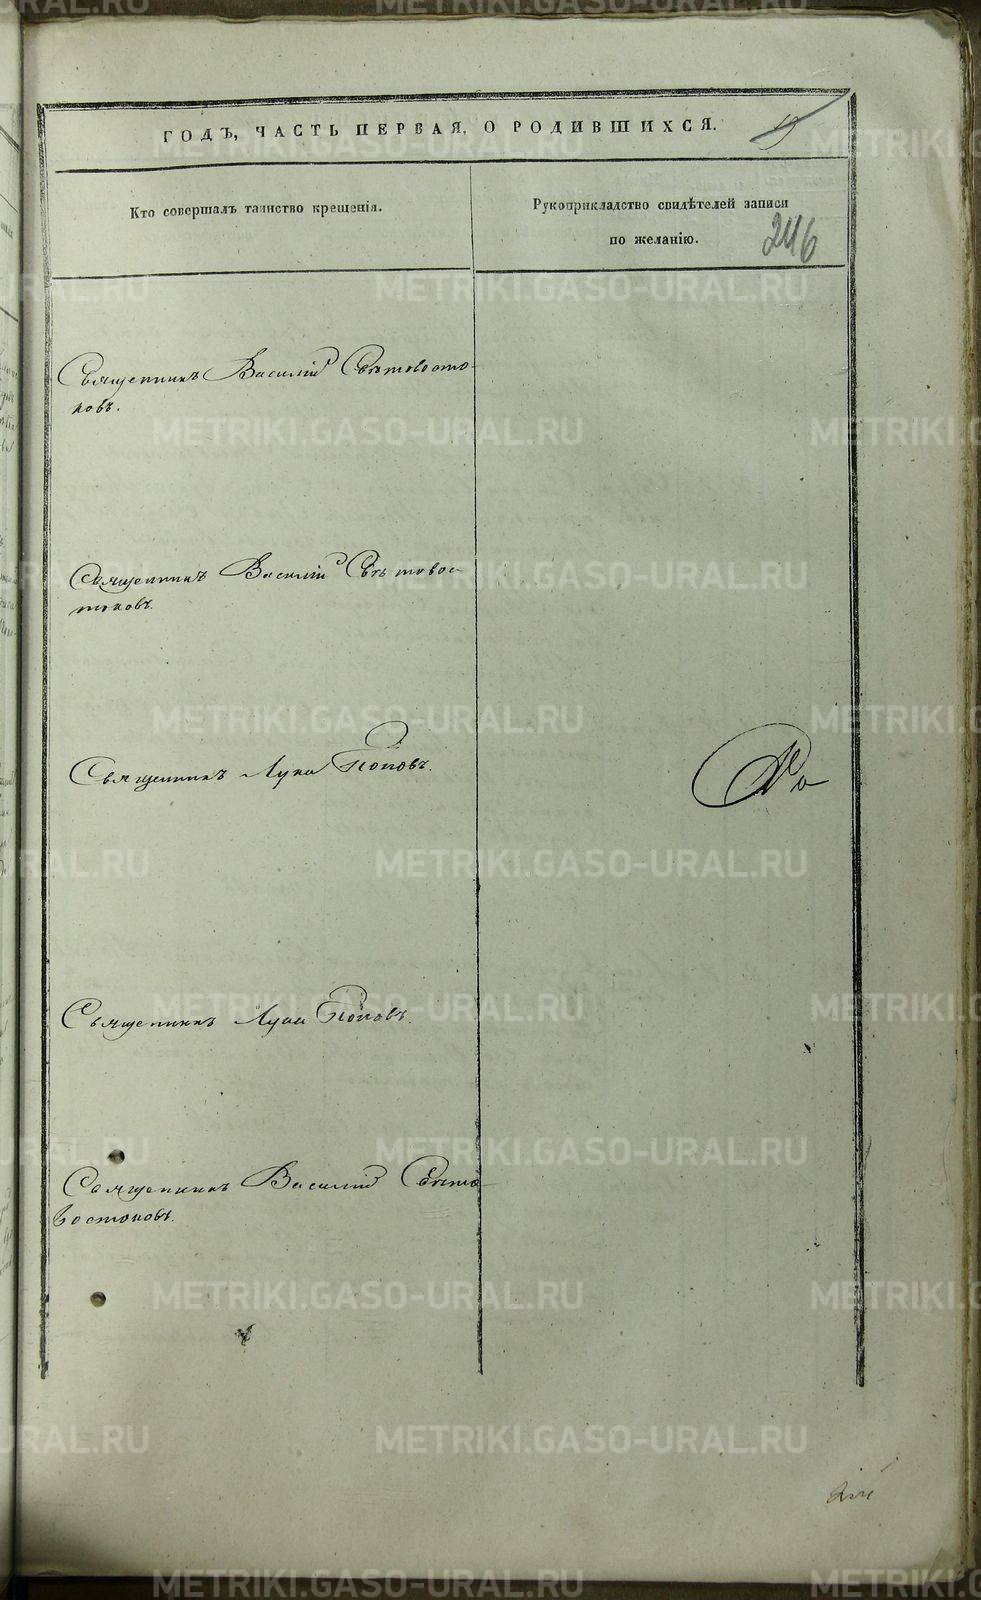 ГОДЪ, ЧАСТЬ ПЕРВАЯ, О РОДИВШИХСЯ.
19
Кто совершалъ таинство крещенія.
Рукоприкладство свидѣтелей записи
по желанію.
246
Священникъ Василій Свѣтовосто-
ковъ.
Священникъ Василій Свѣтовос-
токовъ.
Священникъ Лука Поповъ.
Священникъ Лука Поповъ.
Священникъ Василій Свѣто-
востоковъ.
METRIKI.GASO-URAL.RU